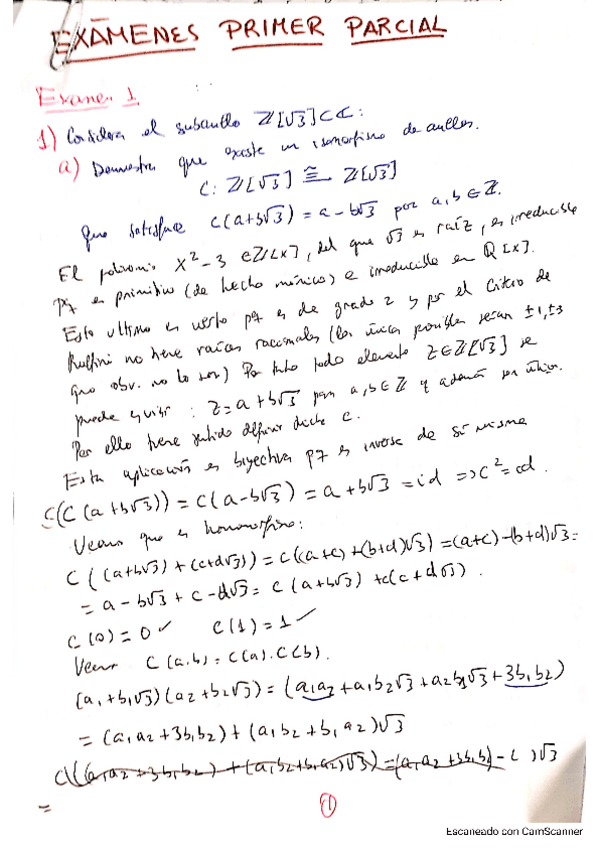 EXÁMENES PRIMER PARCIAL
Examen 1
1) Considera el subanillo ℤ[√3] ⊂ ℂ:
a) Demuestra que existe un isomorfismo de anillos.
C: ℤ[√3] ≅ ℤ[√3]
que satisface C(a+b√3) = a-b√3 por a,b ∈ ℤ.
El polinomio X²-3 ∈ ℤ[x], del que √3 es raíz, es irreducible
pq es primitivo (de hecho mónico) e irreducible en ℚ[x].
Esto ultimo es cierto pq es de grado 2 y por el Criterio de
Ruffini no tiene raíces racionales (las únicas posibles serían ±1,±3
que obv. no lo son) Por tanto todo elemento z∈ℤ[√3] se
puede escribir : z = a+b√3 para a,b∈ℤ y además son únicos.
Por ello tiene sentido definir dicha C.
Esta aplicación es biyectiva pq es inversa de sí misma
C(C(a+b√3)) = C(a-b√3) = a+b√3 = id => C² = id.
Veamos que es homomorfismo:
C((a+b√3)+(c+d√3)) = C((a+c)+(b+d)√3) = (a+c)-(b+d)√3 =
= a-b√3 + c-d√3 = C(a+b√3) + C(c+d√3).
C(0)=0 ✓ C(1)=1 ✓
Veamos C(a.b) = C(a).C(b).
(a₁+b₁√3)(a₂+b₂√3) = (a₁a₂+a₁b₂√3+a₂b₁√3+3b₁b₂)
= (a₁a₂+3b₁b₂)+(a₁b₂+b₁a₂)√3
C((a₁a₂+3b₁b₂)+(a₁b₂+b₁a₂)√3) = (a₁a₂+3b₁b₂)-( )√3
=
1
Escaneado con CamScanner